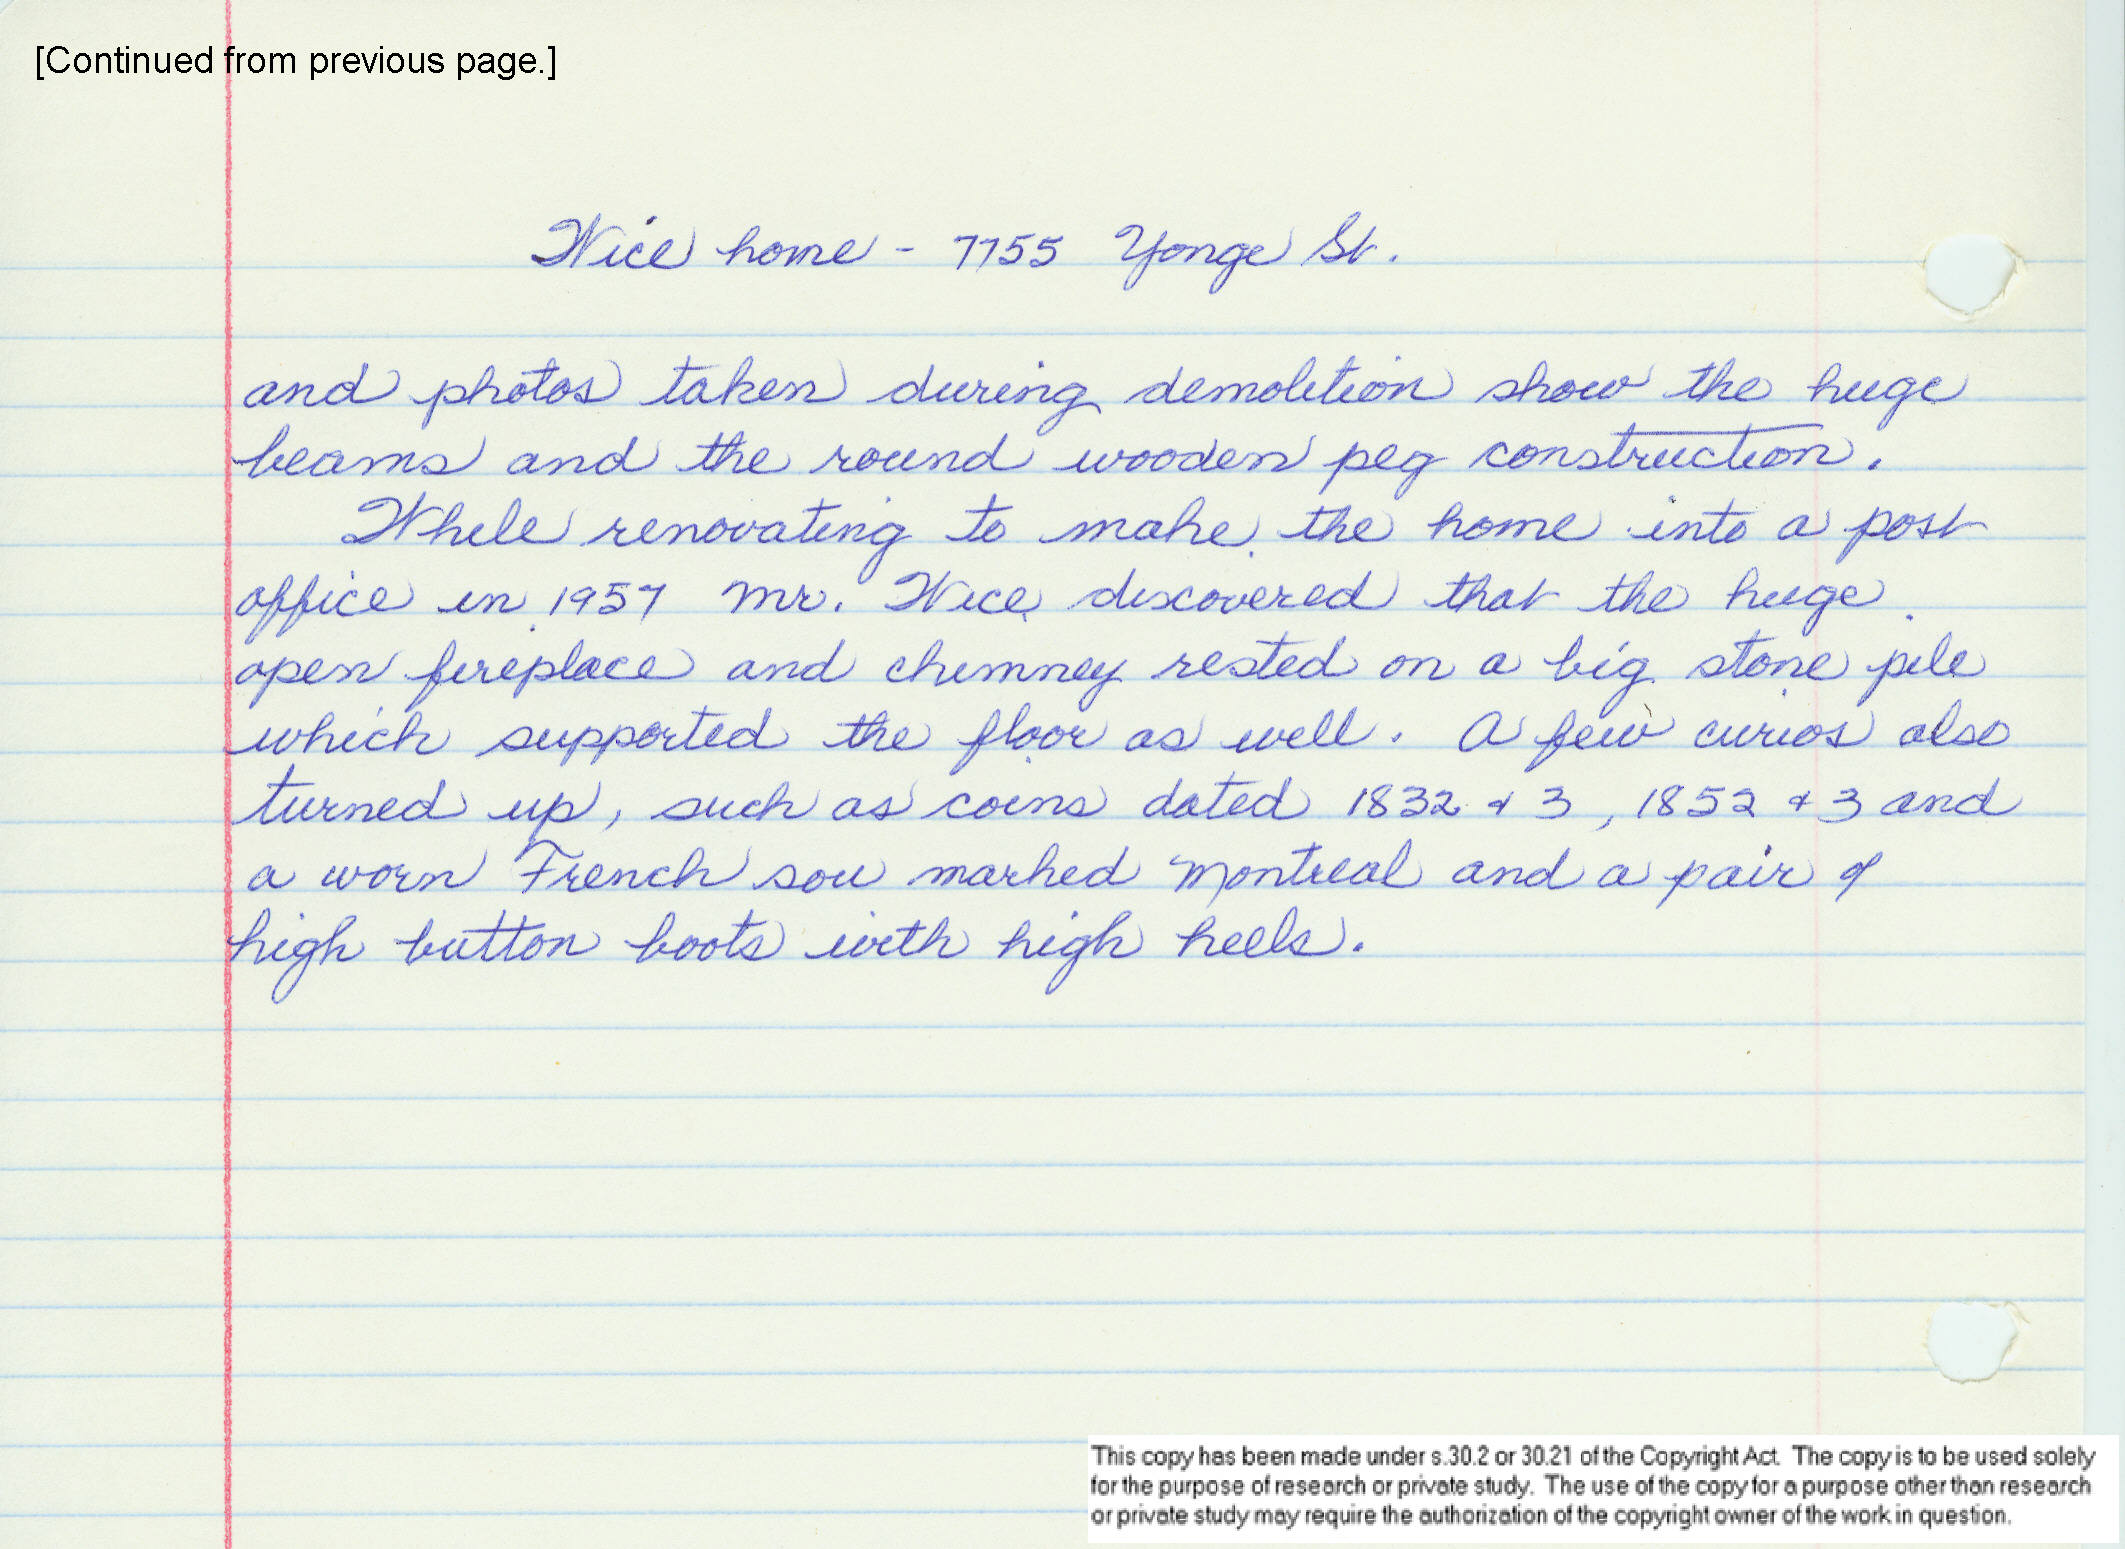 [Continued from previous page.]
Wice home - 7755 Yonge St.
and photos taken during demolition show the huge
beams and the round wooden peg construction.
While renovating to make the home into a post
office in 1957 Mr. Wice discovered that the huge
open fireplace and chimney rested on a big stone pile
which supported the floor as well. A few curios also
turned up, such as coins dated 1832 & 3, 1852 & 3 and
a worn French sou marked Montreal and a pair of
high button boots with high heels.
This copy has been made under s.30.2 or 30.21 of the Copyright Act. The copy is to be used solely
for the purpose of research or private study. The use of the copy for a purpose other than research
or private study may require the authorization of the copyright owner of the work in question.